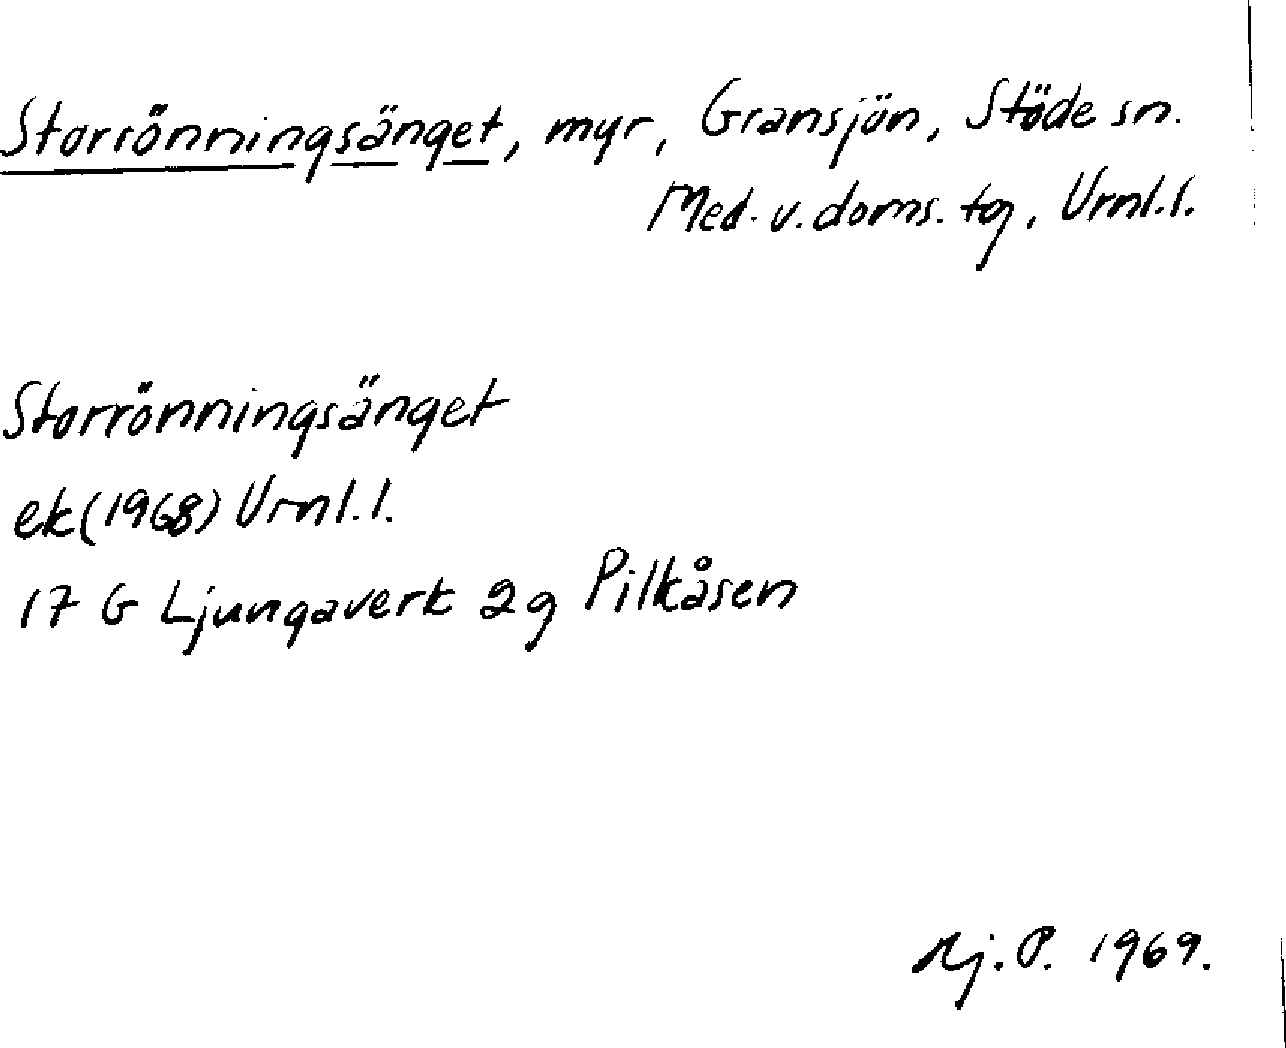 Storrönningsänget, myr, Gransjön, Stöde sn.
Med. v. doms. tg, Vrnl.l.
Storrönningsänget
ek (1968) Vrnl.l.
17 G Ljungaverk 2g Pilkåsen
Aj. P. 1969.